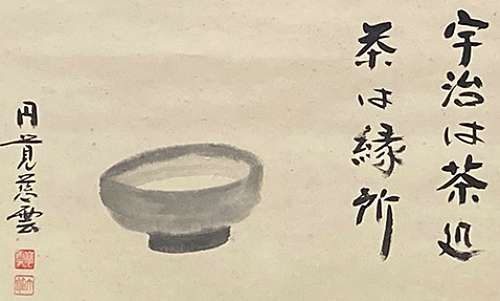 宇治は茶処
茶は縁所
円覚慈雲